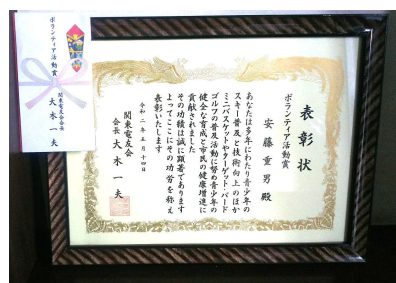 表彰状
ボランティア活動賞
安藤重男殿
あなたは多年にわたり青少年の
スキー普及と技術向上のほか
ミニバスケットやターゲット・バード
ゴルフの普及活動に努め青少年の
健全な育成と市民の健康増進に
貢献されました
その功績は誠に顕著であります
よってここにその功労を称え
表彰いたします
令和二年五月十四日
関東電友会
会長 大木一夫
ボランティア活動賞
関東電友会会長
大木一夫